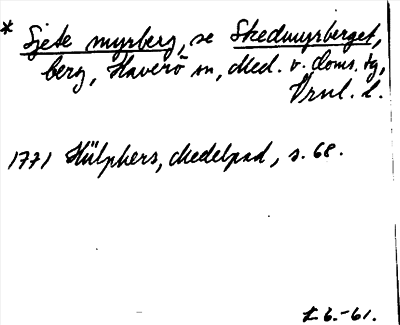 * Sjete myrberg, se Skedmyrberget,
berg, Haverö sn, Med. v. doms. tg,
Vrnl. l.
1771 Hülphers, Medelpad, s. 68.
6.-61.